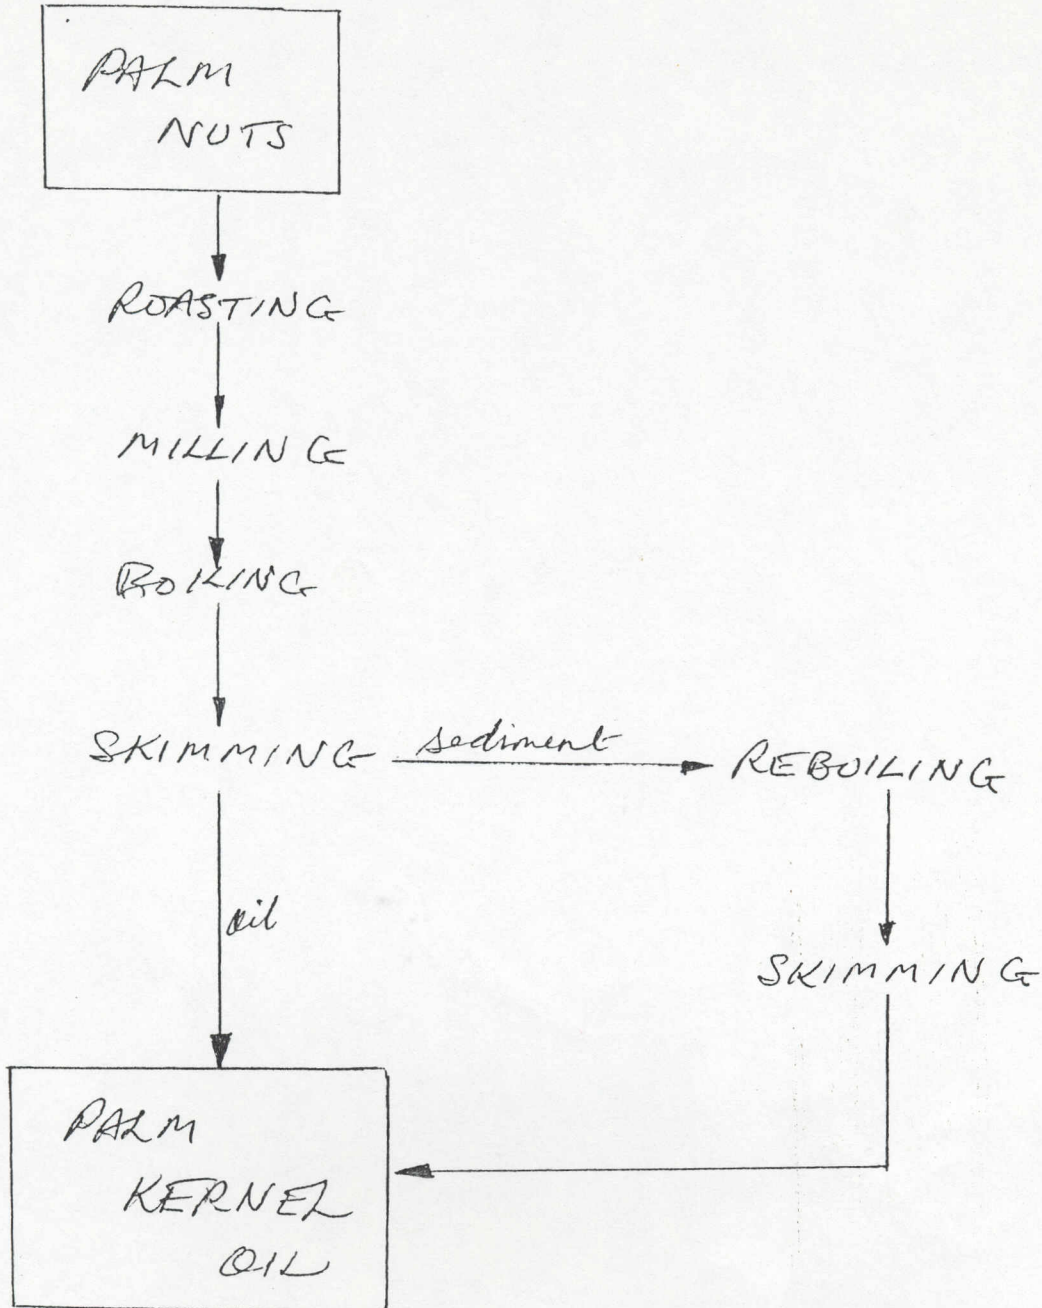 PALM
NUTS
ROASTING
MILLING
BOILING
SKIMMING
sediment
REBOILING
oil
SKIMMING
PALM
KERNEL
OIL